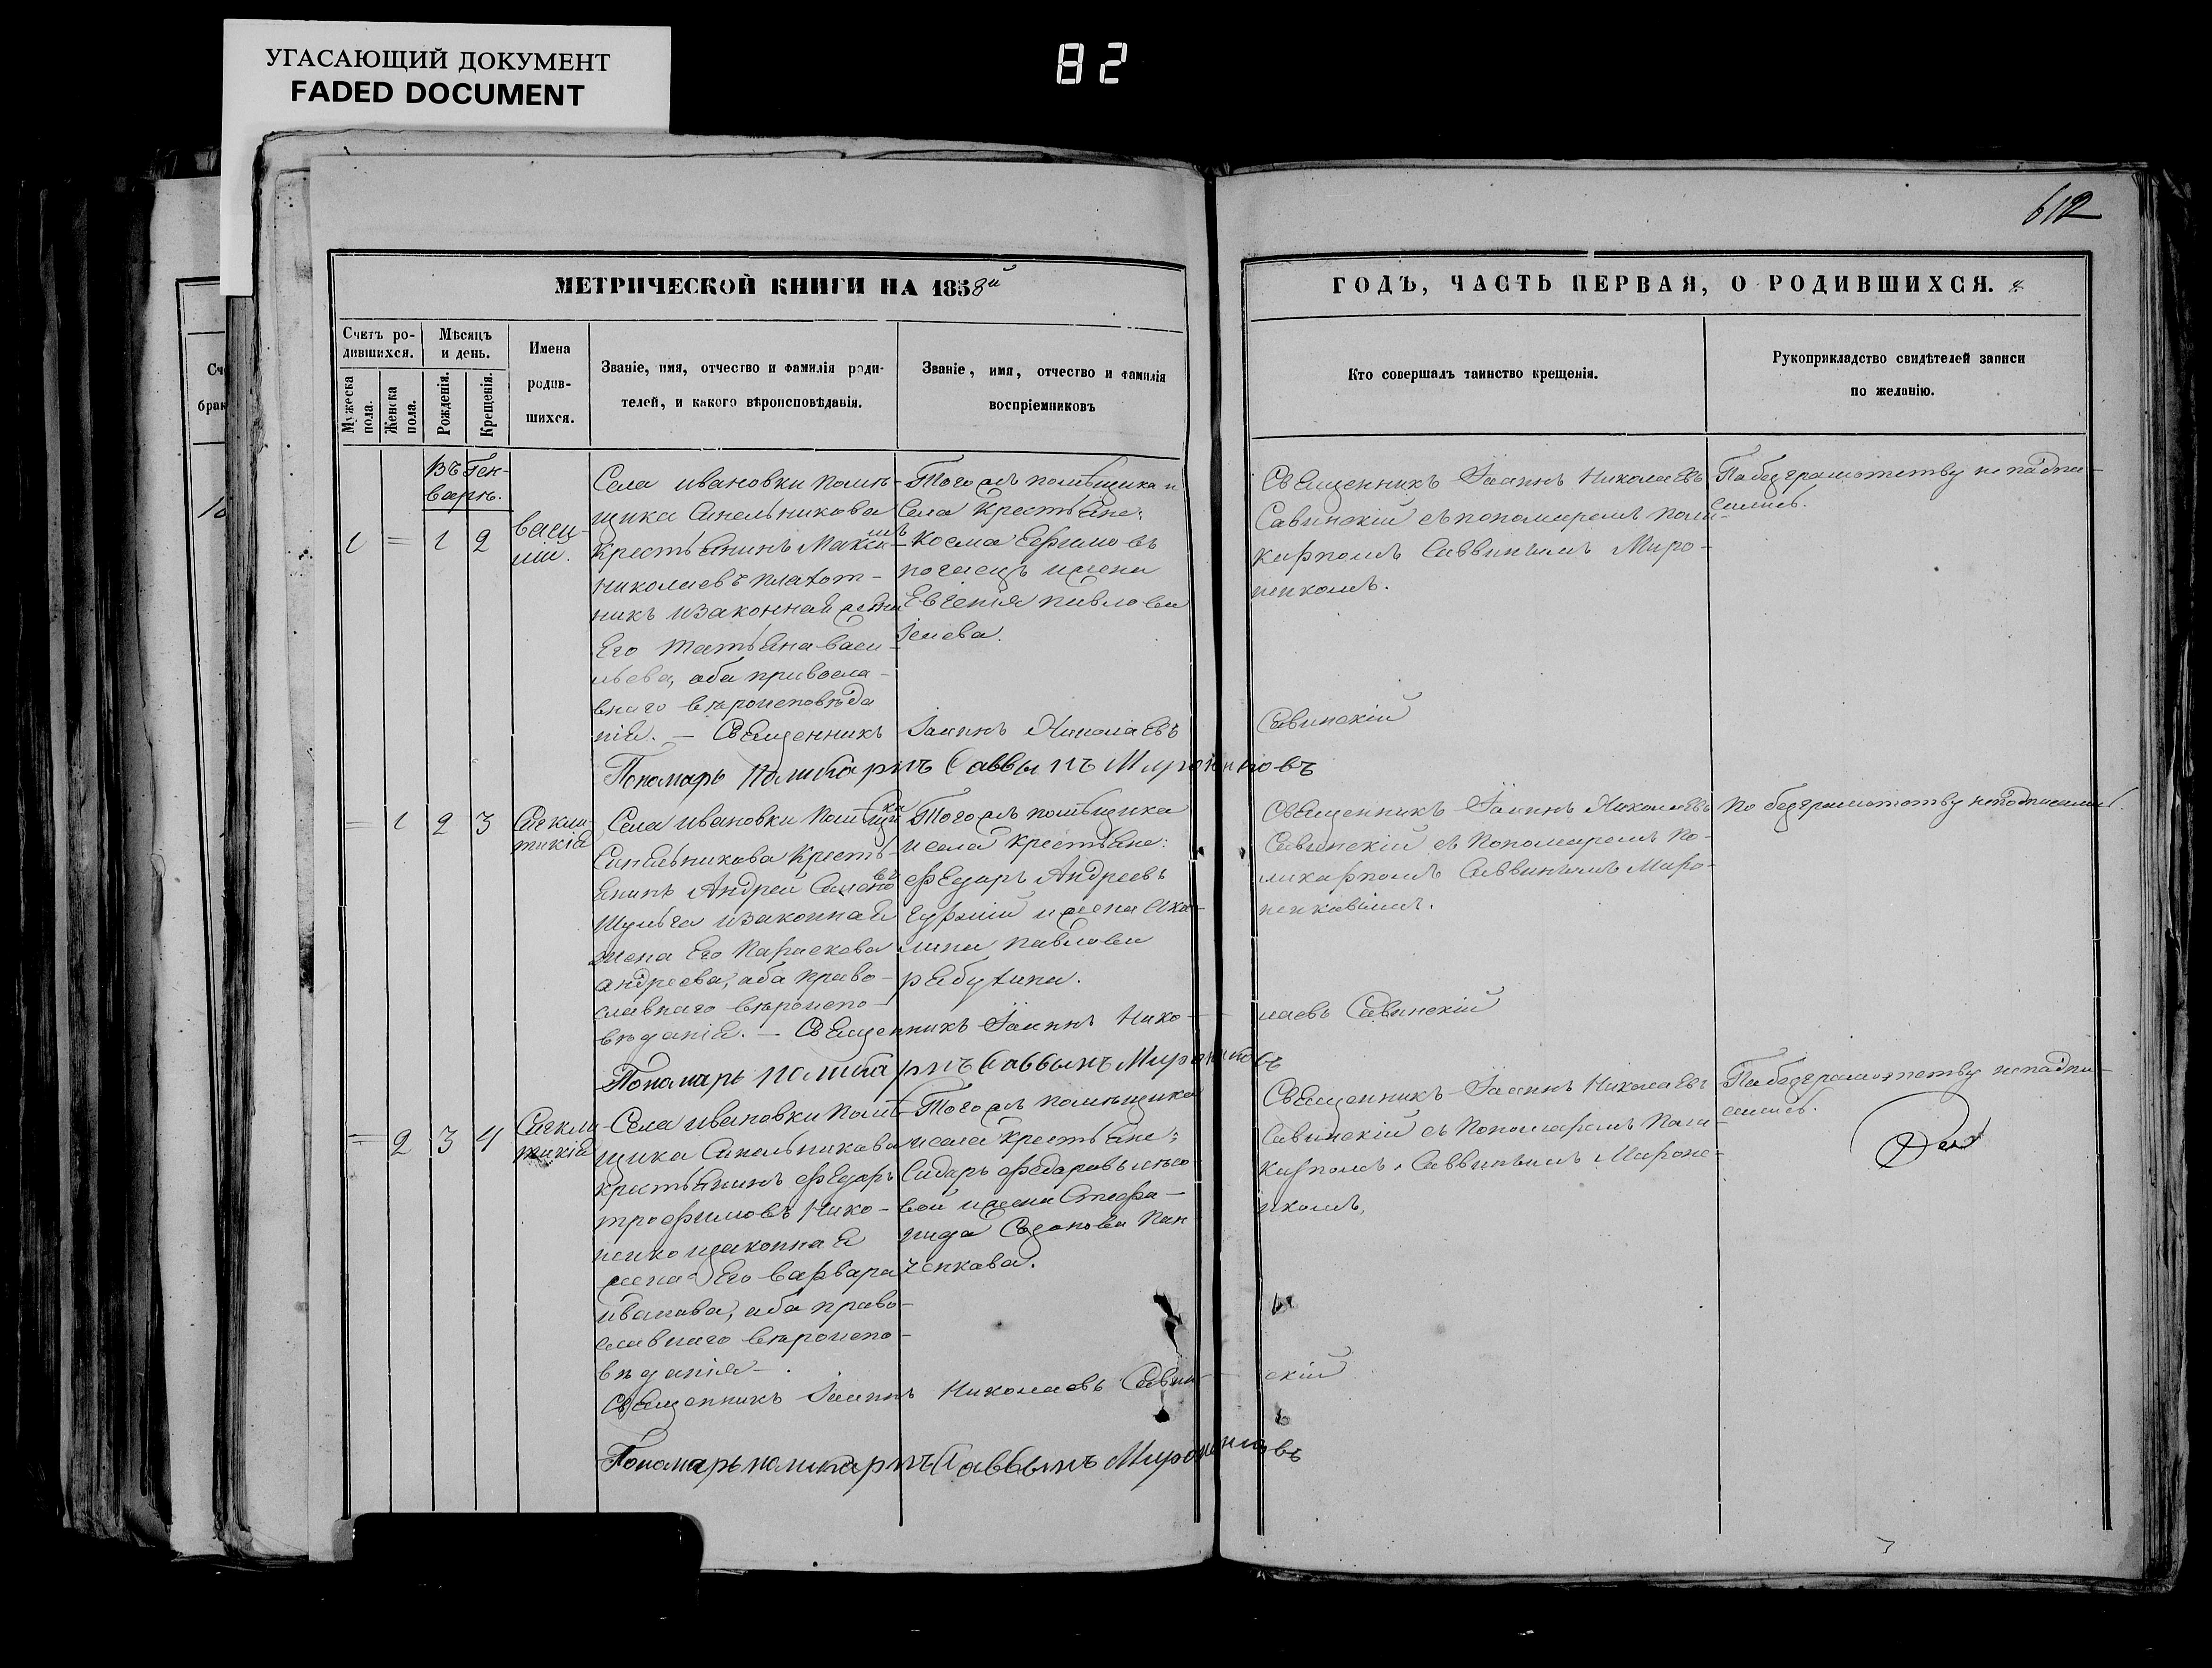 УГАСАЮЩИЙ ДОКУМЕНТ
FADED DOCUMENT
82
612
МЕТРИЧЕСКОЙ КНИГИ НА 1858й
ГОДЪ, ЧАСТЬ ПЕРВАЯ, О РОДИВШИХСЯ.
Счетъ ро-
дившихся.
Мужеска
пола.
Женска
пола.
Мѣсяцъ
и день.
Рожденія.
Крещенія.
Имена
родив-
шихся.
Званіе, имя, отчество и фамилія роди-
телей, и какого вѣроисповѣданія.
Званіе, имя, отчество и фамилія
воспріемниковъ
Кто совершалъ таинство крещенія.
Рукоприкладство свидѣтелей записи
по желанію.
Въ Ген-
варѣ.
1 = 1 2
Васи-
лій.
Села Ивановки помѣ-
щика Синельникова
крестьянинъ Максимъ
Николаевъ Плахот-
никъ и законная жена
его Татьяна Васи-
льева, оба правосла-
внаго вѣроисповѣда
нія. — Священникъ Іоаннъ Николаевъ
Савинскій
Пономарь Поликарпъ Саввынъ Мироненковъ
Того жъ помѣщика и
села крестьяне:
Косма Ефимовъ
жена
Евгенія Павлова
Священникъ Іоаннъ Николаевъ
Савинскій съ пономаремъ Поли-
карпомъ Саввинымъ Миро-
ненкомъ.
Па безграмотству не падпи-
сались.
= 1 2 3
Сигкли-
тикія
Села Ивановки помѣщика
Синельникова кресть-
янинъ Андрей Семено
въ Шульга и законная
жена его Параскева
Андреева, оба право-
славнаго вѣроиспо-
вѣданія. — Священникъ Іоаннъ Нико-
лаевъ Савинскій
Пономарь Поликарпъ Саввынъ Мироненковъ
Того жъ помѣщика
и села крестьяне:
Федаръ Андреевъ
жена Аку-
лина Павлова
Рябухина.
Священникъ Іоаннъ Николаевъ
Савинскій съ Пономаремъ По-
ликарпомъ Саввинымъ Миро-
ненковымъ.
По безграмотству не подписались.
= 2 3 4
Сигкли-
тикія
Села Ивановки помѣ-
щика Синельникова
крестьянинъ Федаръ
Трофимовъ Нико-
ненко и законная
жена его Варвара
Иванова, оба право-
славнаго вѣроиспо-
вѣданія.
Священникъ Іоаннъ Николаевъ Савин-
скій
Пономарь Поликарпъ Саввынъ Мироненковъ
Того жъ помѣщика
и села крестьяне:
Сидаръ Федаровъ
жена Стефа-
нида Пан
ченкава.
Священникъ Іоаннъ Николаевъ
Савинскій съ Пономаремъ Поли-
карпомъ Саввинымъ Мироне-
нкомъ.
Па безграмотству не падпи-
сались.